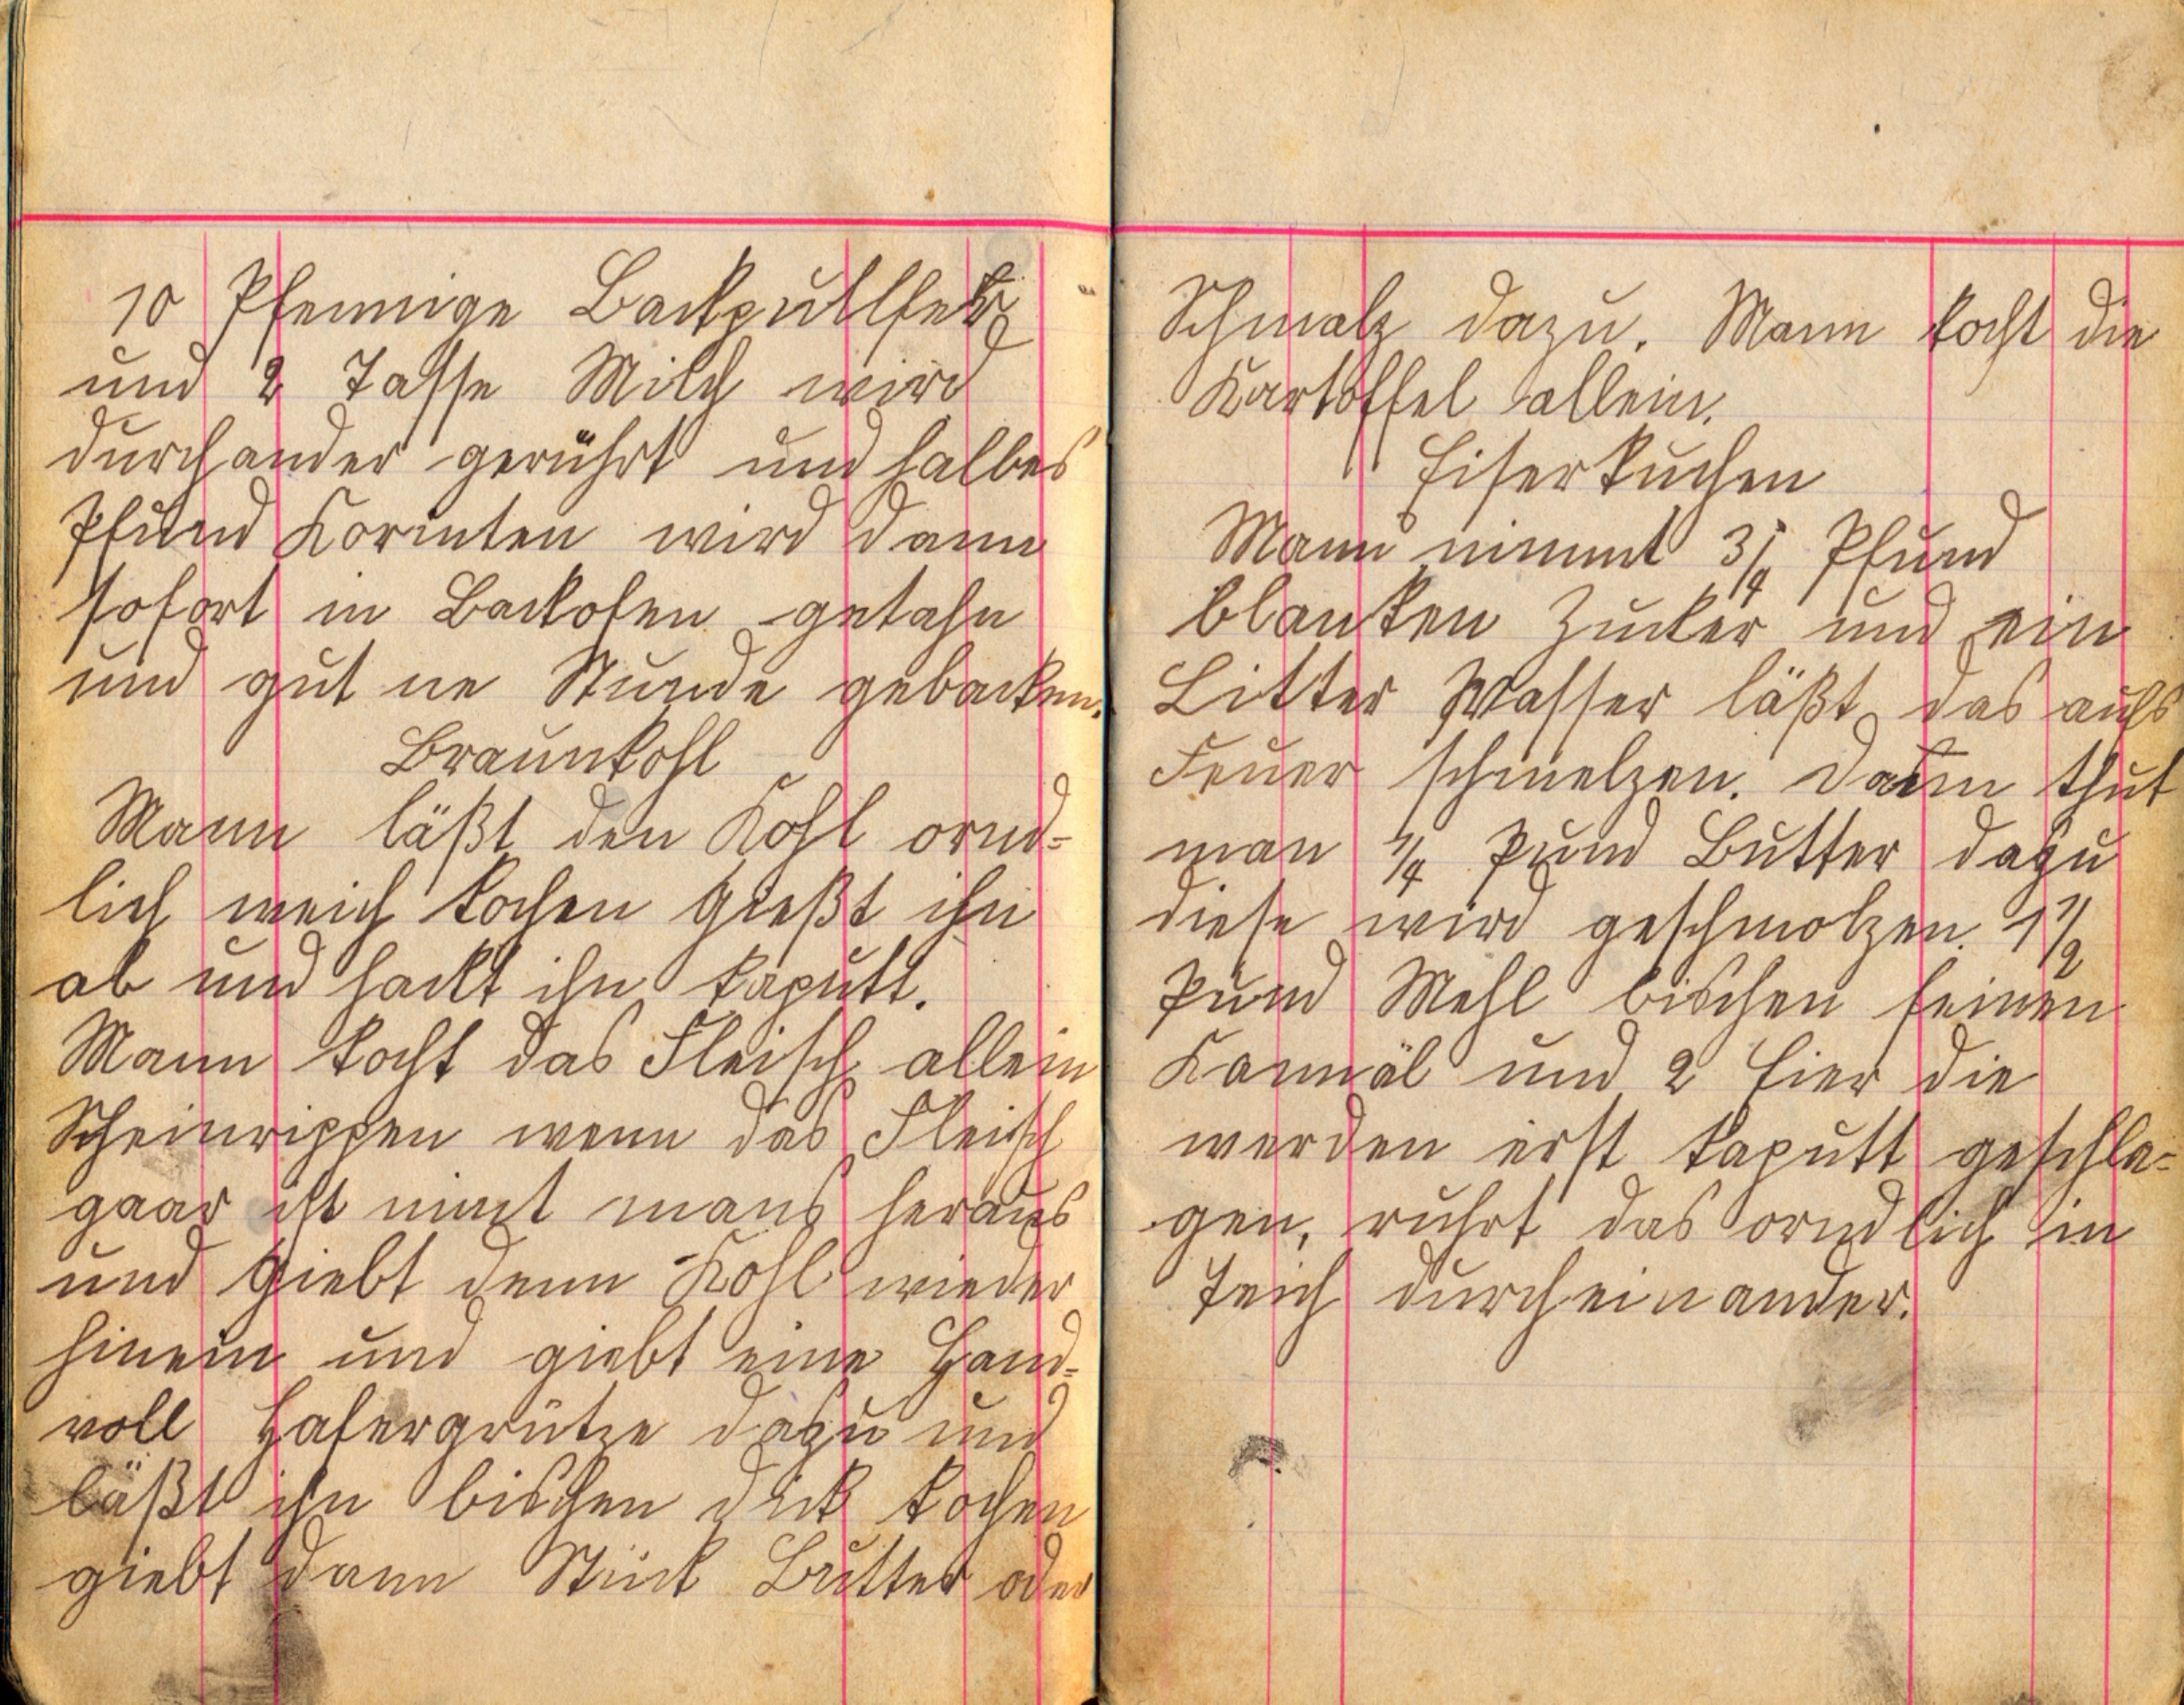 10 Pfennige Backpullfer
und 2 Tasse Milch wird
durchander gerührt und halbes
Pfund Korinten wird dann
sofort in Backofen getahn
und gut ne Stunde gebacken.
Braunkohl
Mann läßt den Kohl ornd-
lich weich kochen gießt ihn
ab und hackt ihn kaputt.
Mann kocht das Fleisch allein
Scheinrippen wenn das Fleisch
gaar ist nimt mans heraus
und giebt denn Kohl wieder
hinein und giebt eine Hand-
voll Hafergrütze dazu und
läßt ihn bischen dick kochen
giebt dann Stück Butter oder
Schmalz dazu. Mann kocht die
Kartoffel allein.
Eiserkuchen
Mann nimmt 3/4 Pfund
blanken Zucker und ein
Litter Wasser läßt das aufs
Feuer schmelzen. Dann thut
man 1/4 Pund Butter dazu
diese wird geschmolzen. 1 1/2
Pund Mehl bischen feinen
Kannäl und 2 Eier die
werden erst kaputt geschla-
gen, ruhrt das orndlich in
Teich durcheinander.